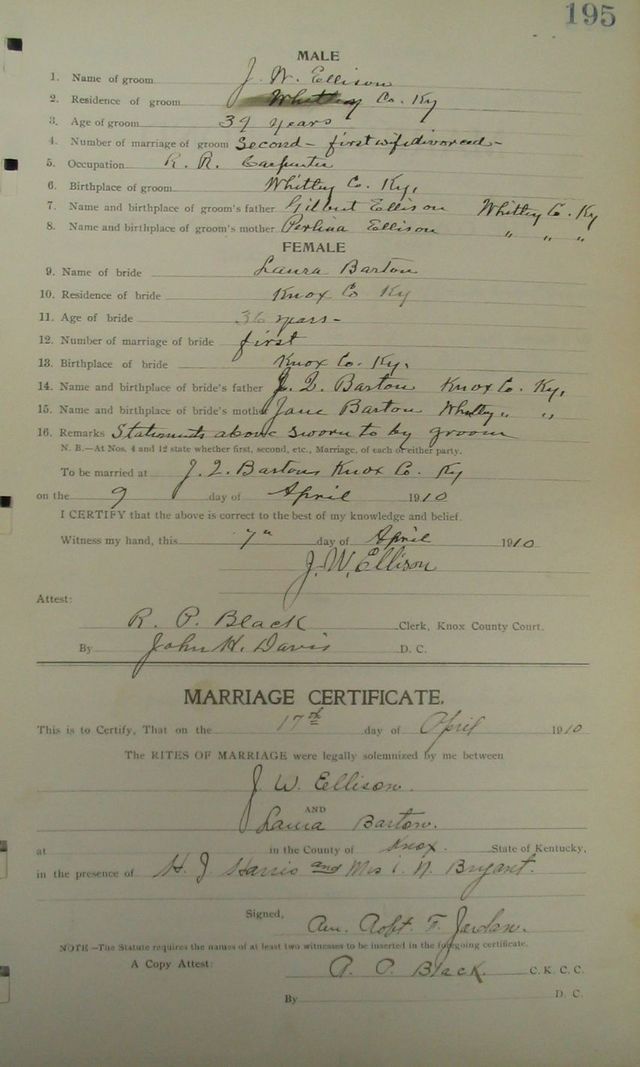 195
MALE
1. Name of groom J. W. Ellison
2. Residence of groom Whitley Co. Ky
3. Age of groom 39 years
4. Number of marriage of groom Second - first wife divorced -
5. Occupation R. R. Carpenter
6. Birthplace of groom Whitley Co. Ky,
7. Name and birthplace of groom's father Gilbert Ellison Whitley Co. Ky
8. Name and birthplace of groom's mother Perlina Ellison " " "
FEMALE
9. Name of bride Laura Barton
10. Residence of bride Knox Co Ky
11. Age of bride 36 years -
12. Number of marriage of bride first
13. Birthplace of bride Knox Co. Ky.
14. Name and birthplace of bride's father J. Q. Barton Knox Co. Ky,
15. Name and birthplace of bride's mother Jane Barton Whitley " "
16. Remarks Statements above sworn to by groom
N. B.—At Nos. 4 and 12 state whether first, second, etc., Marriage, of each or either party.
To be married at J. Q. Bartons Knox Co. Ky
on the 9 day of April 1910
I CERTIFY that the above is correct to the best of my knowledge and belief.
Witness my hand, this 7th day of April 1910
J. W. Ellison
Attest:
R. P. Black Clerk, Knox County Court.
By John H. Davis D. C.
MARRIAGE CERTIFICATE.
This is to Certify, That on the 17th day of April 1910
The RITES OF MARRIAGE were legally solemnized by me between
J. W. Ellison.
AND
Laura Barton.
at in the County of Knox. State of Kentucky,
in the presence of H. J Harris and Mrs I. N. Bryant.
Signed, Robt. F. Jordan.
NOTE—The Statute requires the names of at least two witnesses to be inserted in the foregoing certificate.
A Copy Attest: R. P. Black. C. K. C. C.
By D. C.